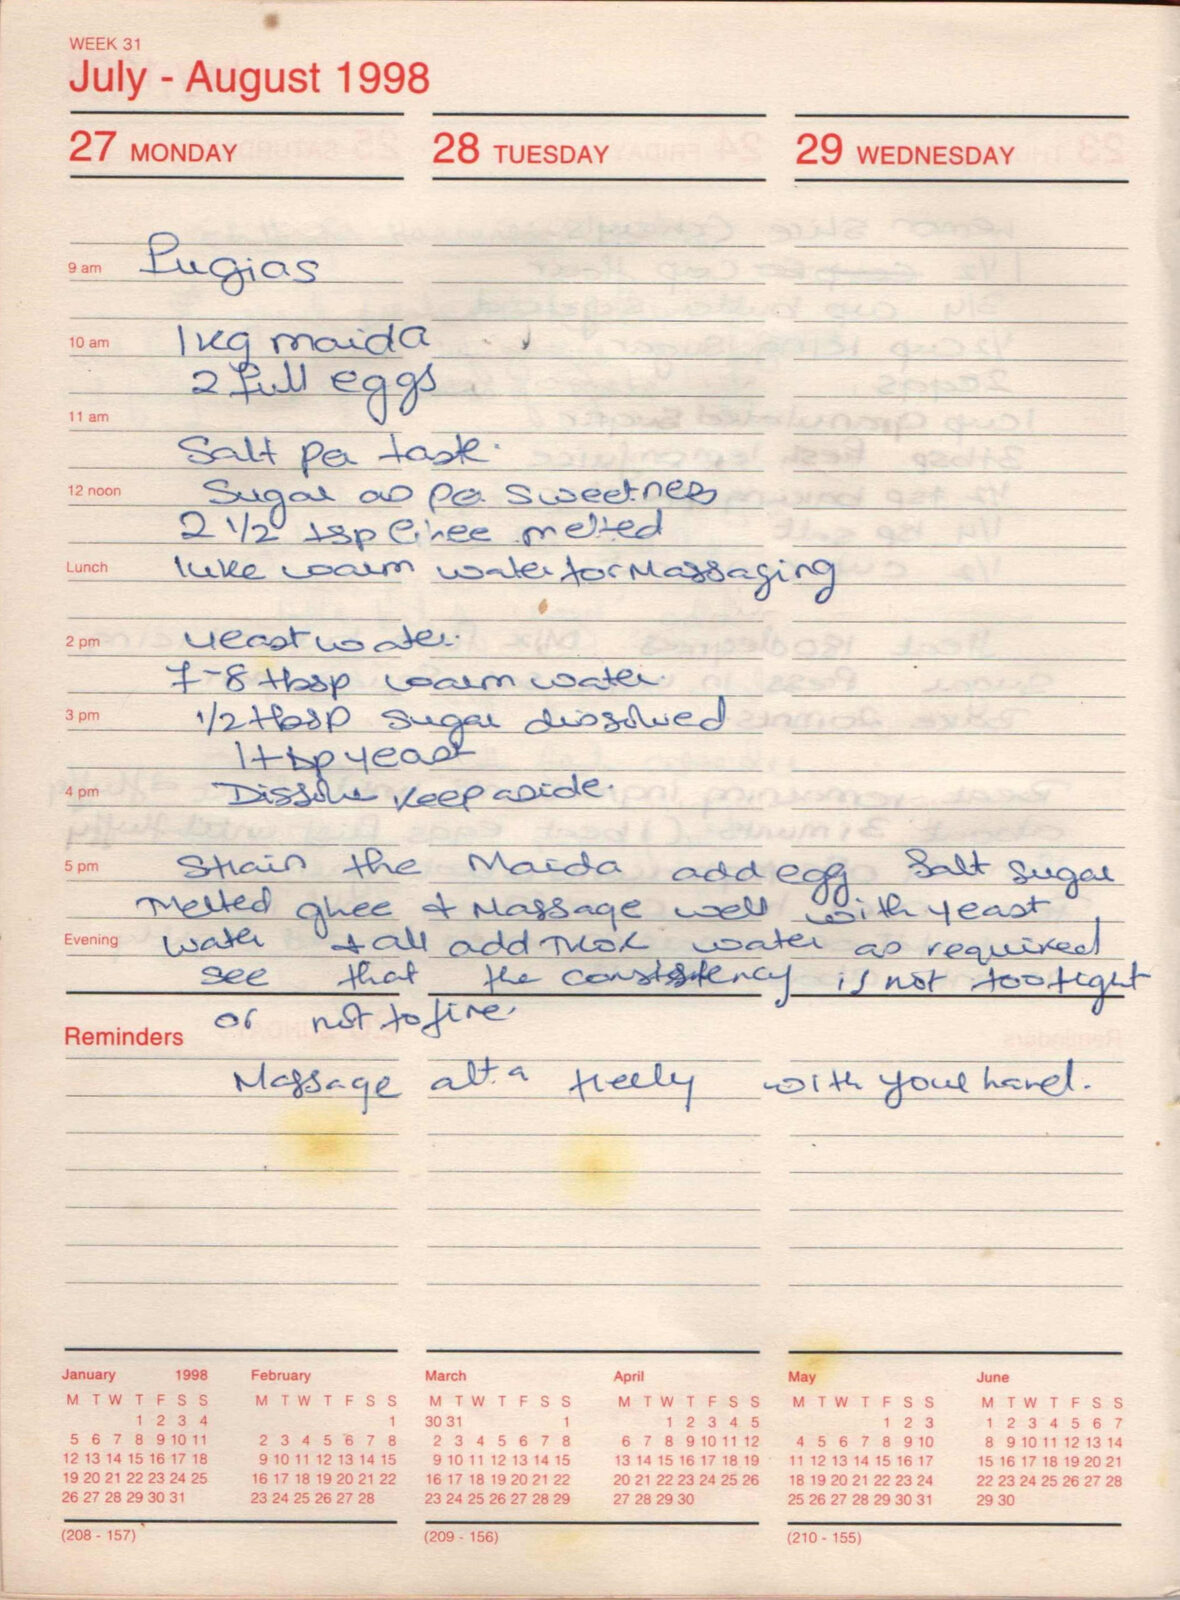 WEEK 31
July - August 1998
27 MONDAY 28 TUESDAY 29 WEDNESDAY
9 am Fugias
10 am 1 kg maida
2 full eggs
11 am
Salt per taste.
12 noon Sugar as per sweetness
2 1/2 tsp Ghee melted
Lunch luke warm water for Massaging
2 pm Yeast water.
7-8 tbsp warm water.
3 pm 1/2 tbsp sugar dissolved
1 tbsp yeast
4 pm Dissolve keep aside.
5 pm Strain the Maida add egg Salt sugar
Melted ghee & Massage well with yeast
Evening water & all add more water as required
see that the consistency is not too tight
or not to fine.
Reminders
Massage with your hand.
January 1998 February March April May June
M T W T F S S M T W T F S S M T W T F S S M T W T F S S M T W T F S S M T W T F S S
1 2 3 4 1 30 31 1 1 2 3 4 5 1 2 3 1 2 3 4 5 6 7
5 6 7 8 9 10 11 2 3 4 5 6 7 8 2 3 4 5 6 7 8 6 7 8 9 10 11 12 4 5 6 7 8 9 10 8 9 10 11 12 13 14
12 13 14 15 16 17 18 9 10 11 12 13 14 15 9 10 11 12 13 14 15 13 14 15 16 17 18 19 11 12 13 14 15 16 17 15 16 17 18 19 20 21
19 20 21 22 23 24 25 16 17 18 19 20 21 22 16 17 18 19 20 21 22 20 21 22 23 24 25 26 18 19 20 21 22 23 24 22 23 24 25 26 27 28
26 27 28 29 30 31 23 24 25 26 27 28 23 24 25 26 27 28 29 27 28 29 30 25 26 27 28 29 30 31 29 30
(208 - 157) (209 - 156) (210 - 155)